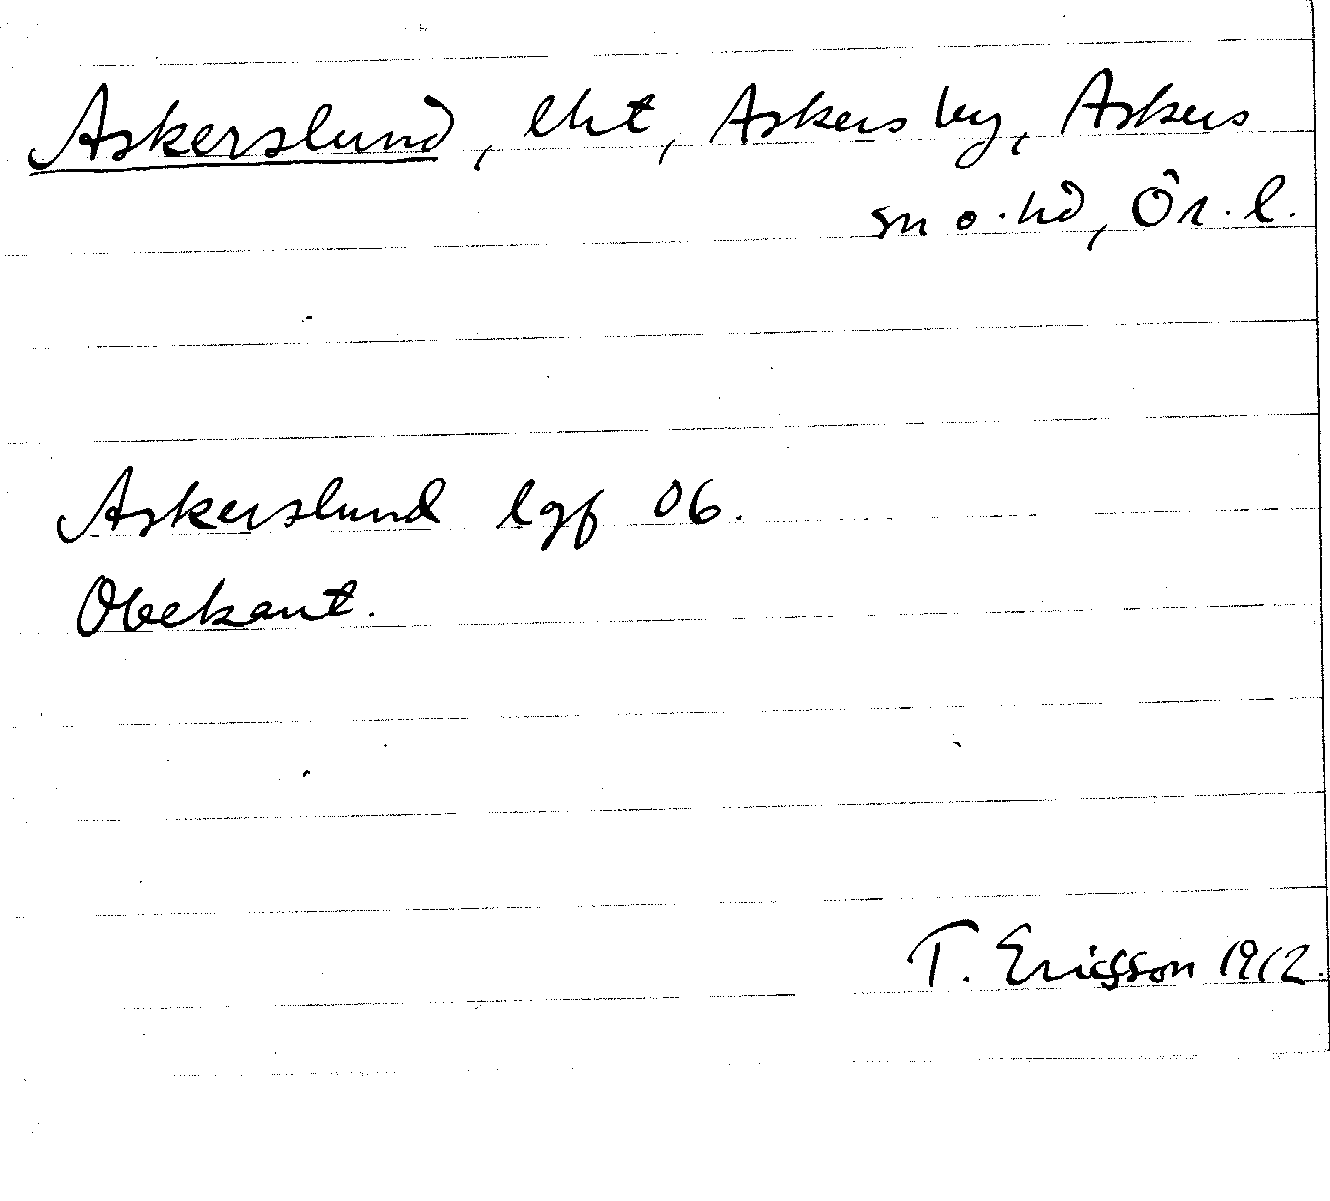 Askerslund, lht, Askers by, Askers
sn o. hd, Ör. l.
Askerslund lgf 06.
Obekant.
T. Ericsson 1912.